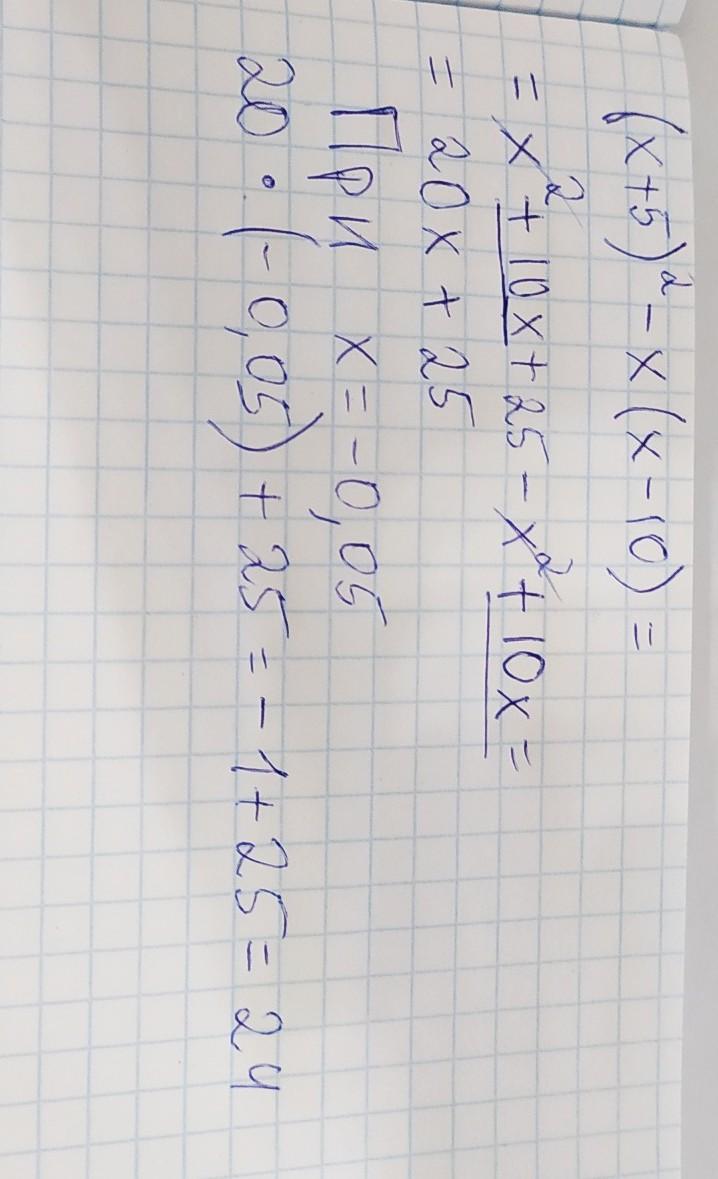 (x+5)² - x(x-10) =
= x² + 10x + 25 - x² + 10x =
= 20x + 25
При x = -0,05
20 · (-0,05) + 25 = -1 + 25 = 24